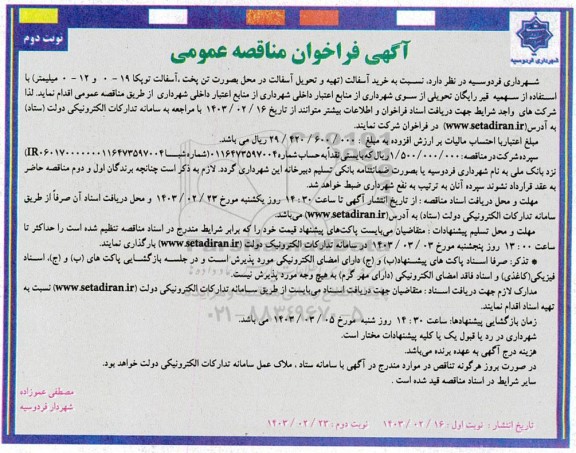 نوبت دوم
شهرداری فردوسیه
آگهی فراخوان مناقصه عمومی
شهرداری فردوسیه در نظر دارد، نسبت به خرید آسفالت (تهیه و تحویل آسفالت در محل بصورت تن پخت ،آسفالت توپکا ۱۹ - ۰ و ۱۲ - ۰ میلیمتر) با
استفاده از سهمیه قیر رایگان تحویلی از سوی شهرداری از منابع اعتبار داخلی شهرداری از منابع اعتبار داخلی شهرداری از طریق مناقصه عمومی اقدام نماید. لذا
شرکت های واجد شرایط جهت دریافت اسناد فراخوان و اطلاعات بیشتر میتوانند از تاریخ ۱۶ / ۰۲ / ۱۴۰۳ با مراجعه به سامانه تدارکات الکترونیکی دولت (ستاد)
به آدرس(www.setadiran.ir) در فراخوان شرکت نمایند.
مبلغ اعتباربا احتساب مالیات بر ارزش افزوده به مبلغ : ۲۹/۴۲۰/۶۰۰/۰۰۰ ریال می باشد.
سپرده شرکت در مناقصه: ۱/۵۰۰/۰۰۰/۰۰۰ریال که بایستی نقداً به حساب شماره ۰۱۱۶۴۷۳۵۹۷۰۰۴(شماره شبا
نزد بانک ملی به نام شهرداری فردوسیه یا بصورت ضمانتنامه بانکی تسلیم دبیرخانه این شهرداری گردد. لازم به ذکر است چنانچه برندگان اول و دوم مناقصه حاضر
به عقد قرارداد نشوند سپرده آنان به ترتیب به نفع شهرداری ضبط خواهد شد.
مهلت و محل دریافت اسناد مناقصه : از تاریخ انتشار آگهی تا ساعت ۳۰: ۱۴ روز یکشنبه مورخ ۲۳ / ۰۲ / ۱۴۰۳ و محل دریافت اسناد آن صرفاً از طریق
سامانه تدارکات الکترونیکی دولت (ستاد) به آدرس(www.setadiran.ir) می‌باشد.
مهلت و محل تسلیم پیشنهادات : متقاضیان می‌بایست پاکت‌های پیشنهاد قیمت خود را که برابر شرایط مندرج در اسناد مناقصه تنظیم شده است را حداکثر تا
ساعت ۰۰: ۱۳ روز پنجشنبه مورخ ۰۳ / ۰۳ / ۱۴۰۳ در سامانه تدارکات الکترونیک دولت (www.setadiran.ir) بارگذاری نمایند.
* تذکر: صرفا اسناد پاکت های پیشنهاد(ب) و (ج) دارای امضای الکترونیکی مورد پذیرش است و در جلسه بازگشایی پاکت های (ب) و (ج)، اسناد
فیزیکی(کاغذی) و اسناد فاقد امضای الکترونیکی (دارای مهر گرم) به هیچ وجه مورد پذیرش نیست.
مدارک لازم جهت دریافت اسناد : متقاضیان جهت دریافت اسناد می‌بایست از طریق سامانه تدارکات الکترونیکی دولت (www.setadiran.ir) نسبت به
تهیه اسناد اقدام نمایند.
زمان بازگشایی پیشنهادها: ساعت ۳۰: ۱۴ روز شنبه مورخ ۰۵ / ۰۳ / ۱۴۰۳ می باشد.
شهرداری در رد یا قبول یک یا کلیه پیشنهادات مختار است.
هزینه درج آگهی به عهده برنده می‌باشد.
در صورت بروز هرگونه تناقض در موارد مندرج در آگهی با سامانه ستاد ، ملاک عمل سامانه تدارکات الکترونیکی دولت خواهد بود.
سایر شرایط در اسناد مناقصه قید شده است .
مصطفی عموزاده
شهردار فردوسیه
تاریخ انتشار : نوبت اول : ۱۶ / ۰۲ / ۱۴۰۳ نوبت دوم : ۲۳ / ۰۲ / ۱۴۰۳
۰۲۱-۸۸۳۴۹۶۷۰-۵